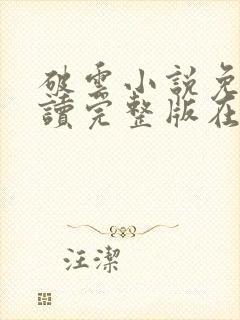 破雲小說免
讀完整版在
汪潔